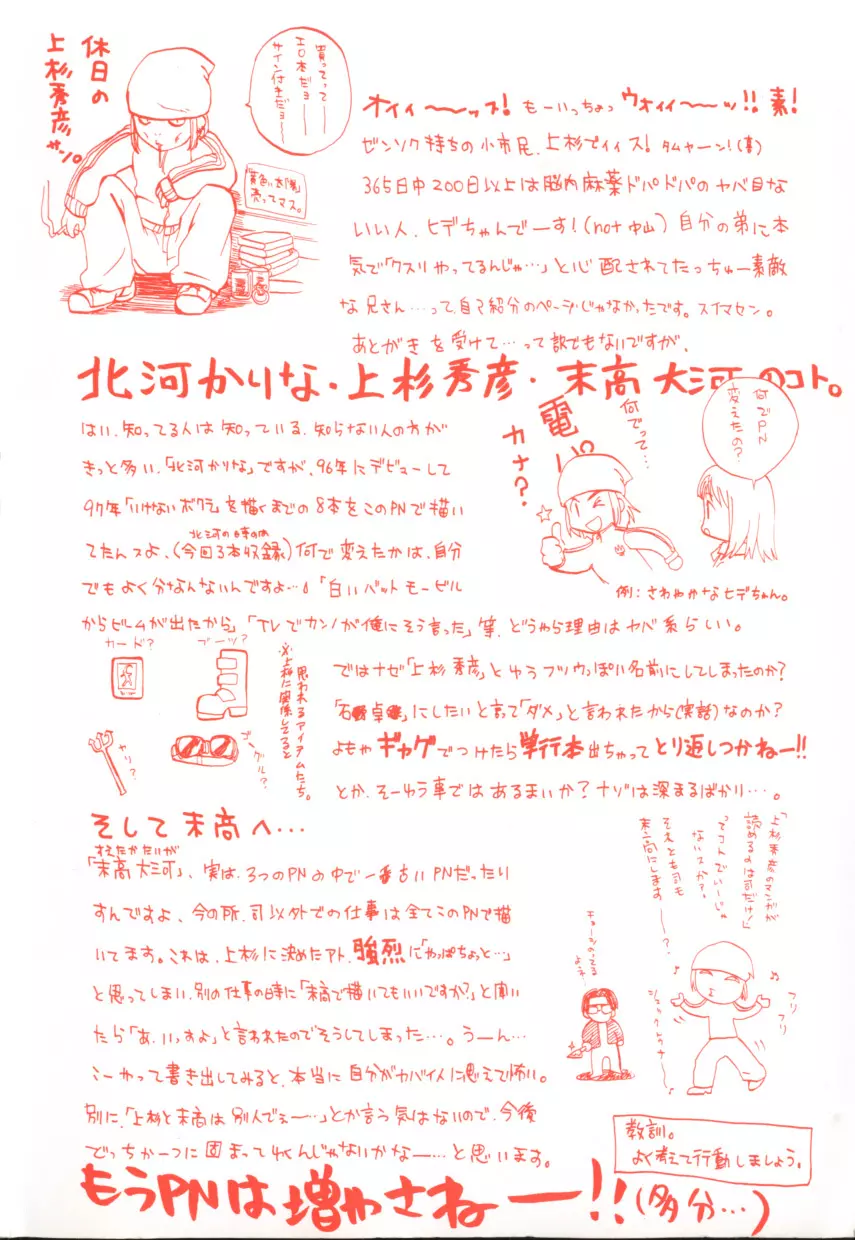 休日の
上杉秀彦
買ってってー
エロ本だョー
サイン付きだョー
売ってマス。
オイィ〜〜ッス! もーいっちょっ ウオィィ〜〜ッ!! 素!
ゼンソク持ちの小市民、上杉でイイス! タムャーン!
365日中200日以上は脳内麻薬ドパドパのヤバ目な
いい人、ヒデちゃんでーす!(not 中山) 自分の弟に本
気で「クスリやってるんじゃ…」と心配されてたっちゅー素敵
な兄さん……って、自己紹介のページじゃなかったです。スイマセン。
あとがきを受けて…って訳でもないですが、
北河かりな・上杉秀彦・末高大河のコト。
はい、知ってる人は知っている、知らない人の方が
きっと多い、「北河かりな」ですが、96年にデビューして
97年「いけないボクラ」を描くまでの8本をこのPNで描い
北河の時のは
てたんスよ、(今回3本収録)何で変えたかは、自分
でもよく分なんないんですよ…。「白いバットモービル
からビームが出たから」「TVでカンノが俺にそう言った」等、どうやら理由はヤバ系らしい。
何でPN
変えたの?
何でって…
電パ
カナ?
例:さわやかなヒデちゃん。
カード?
ブーツ?
ヤリ?
ゴーグル?
※上杉に関係してると
思われるアイテムたち。
ではナゼ「上杉秀彦」とゆうフツウっぽい名前にしてしまったのか?
「石野卓球」にしたいと言って「ダメ」と言われたから(実話)なのか?
よもやギャグでつけたら単行本出ちゃってとり返しつかねー!!
とか、そーゆう事ではあるまいか?ナゾは深まるばかり…。
そして末高へ…
すえたかたいが
「末高大河」、実は、3つのPNの中で一番古いPNだったり
すんですよ、今の所、司以外での仕事は全てこのPNで描
いてます。これは、上杉に決めたアト、強烈に「やっぱちょっと…」
と思ってしまい、別の仕事の時に「末高で描いてもいいですか?」と聞い
たら「あ、いっすよ」と言われたのでそうしてしまった…。うーん…
こーやって書き出してみると、本当に自分がヤバイ人に思えて怖い。
別に、「上杉と末高は別人でぇ〜…」とか言う気はないので、今後
どっちか一つに固まってくんじゃないかなー…と思います。
「上杉秀彦のマンガが
読めるのは司だけ!」
ってコトでいーじゃ
ないスか?
それとも司も
末高にしますー?
フリ
フリ
教訓。
よく考えて行動しましょう。
もうPNは増やさねー!!(多分…)